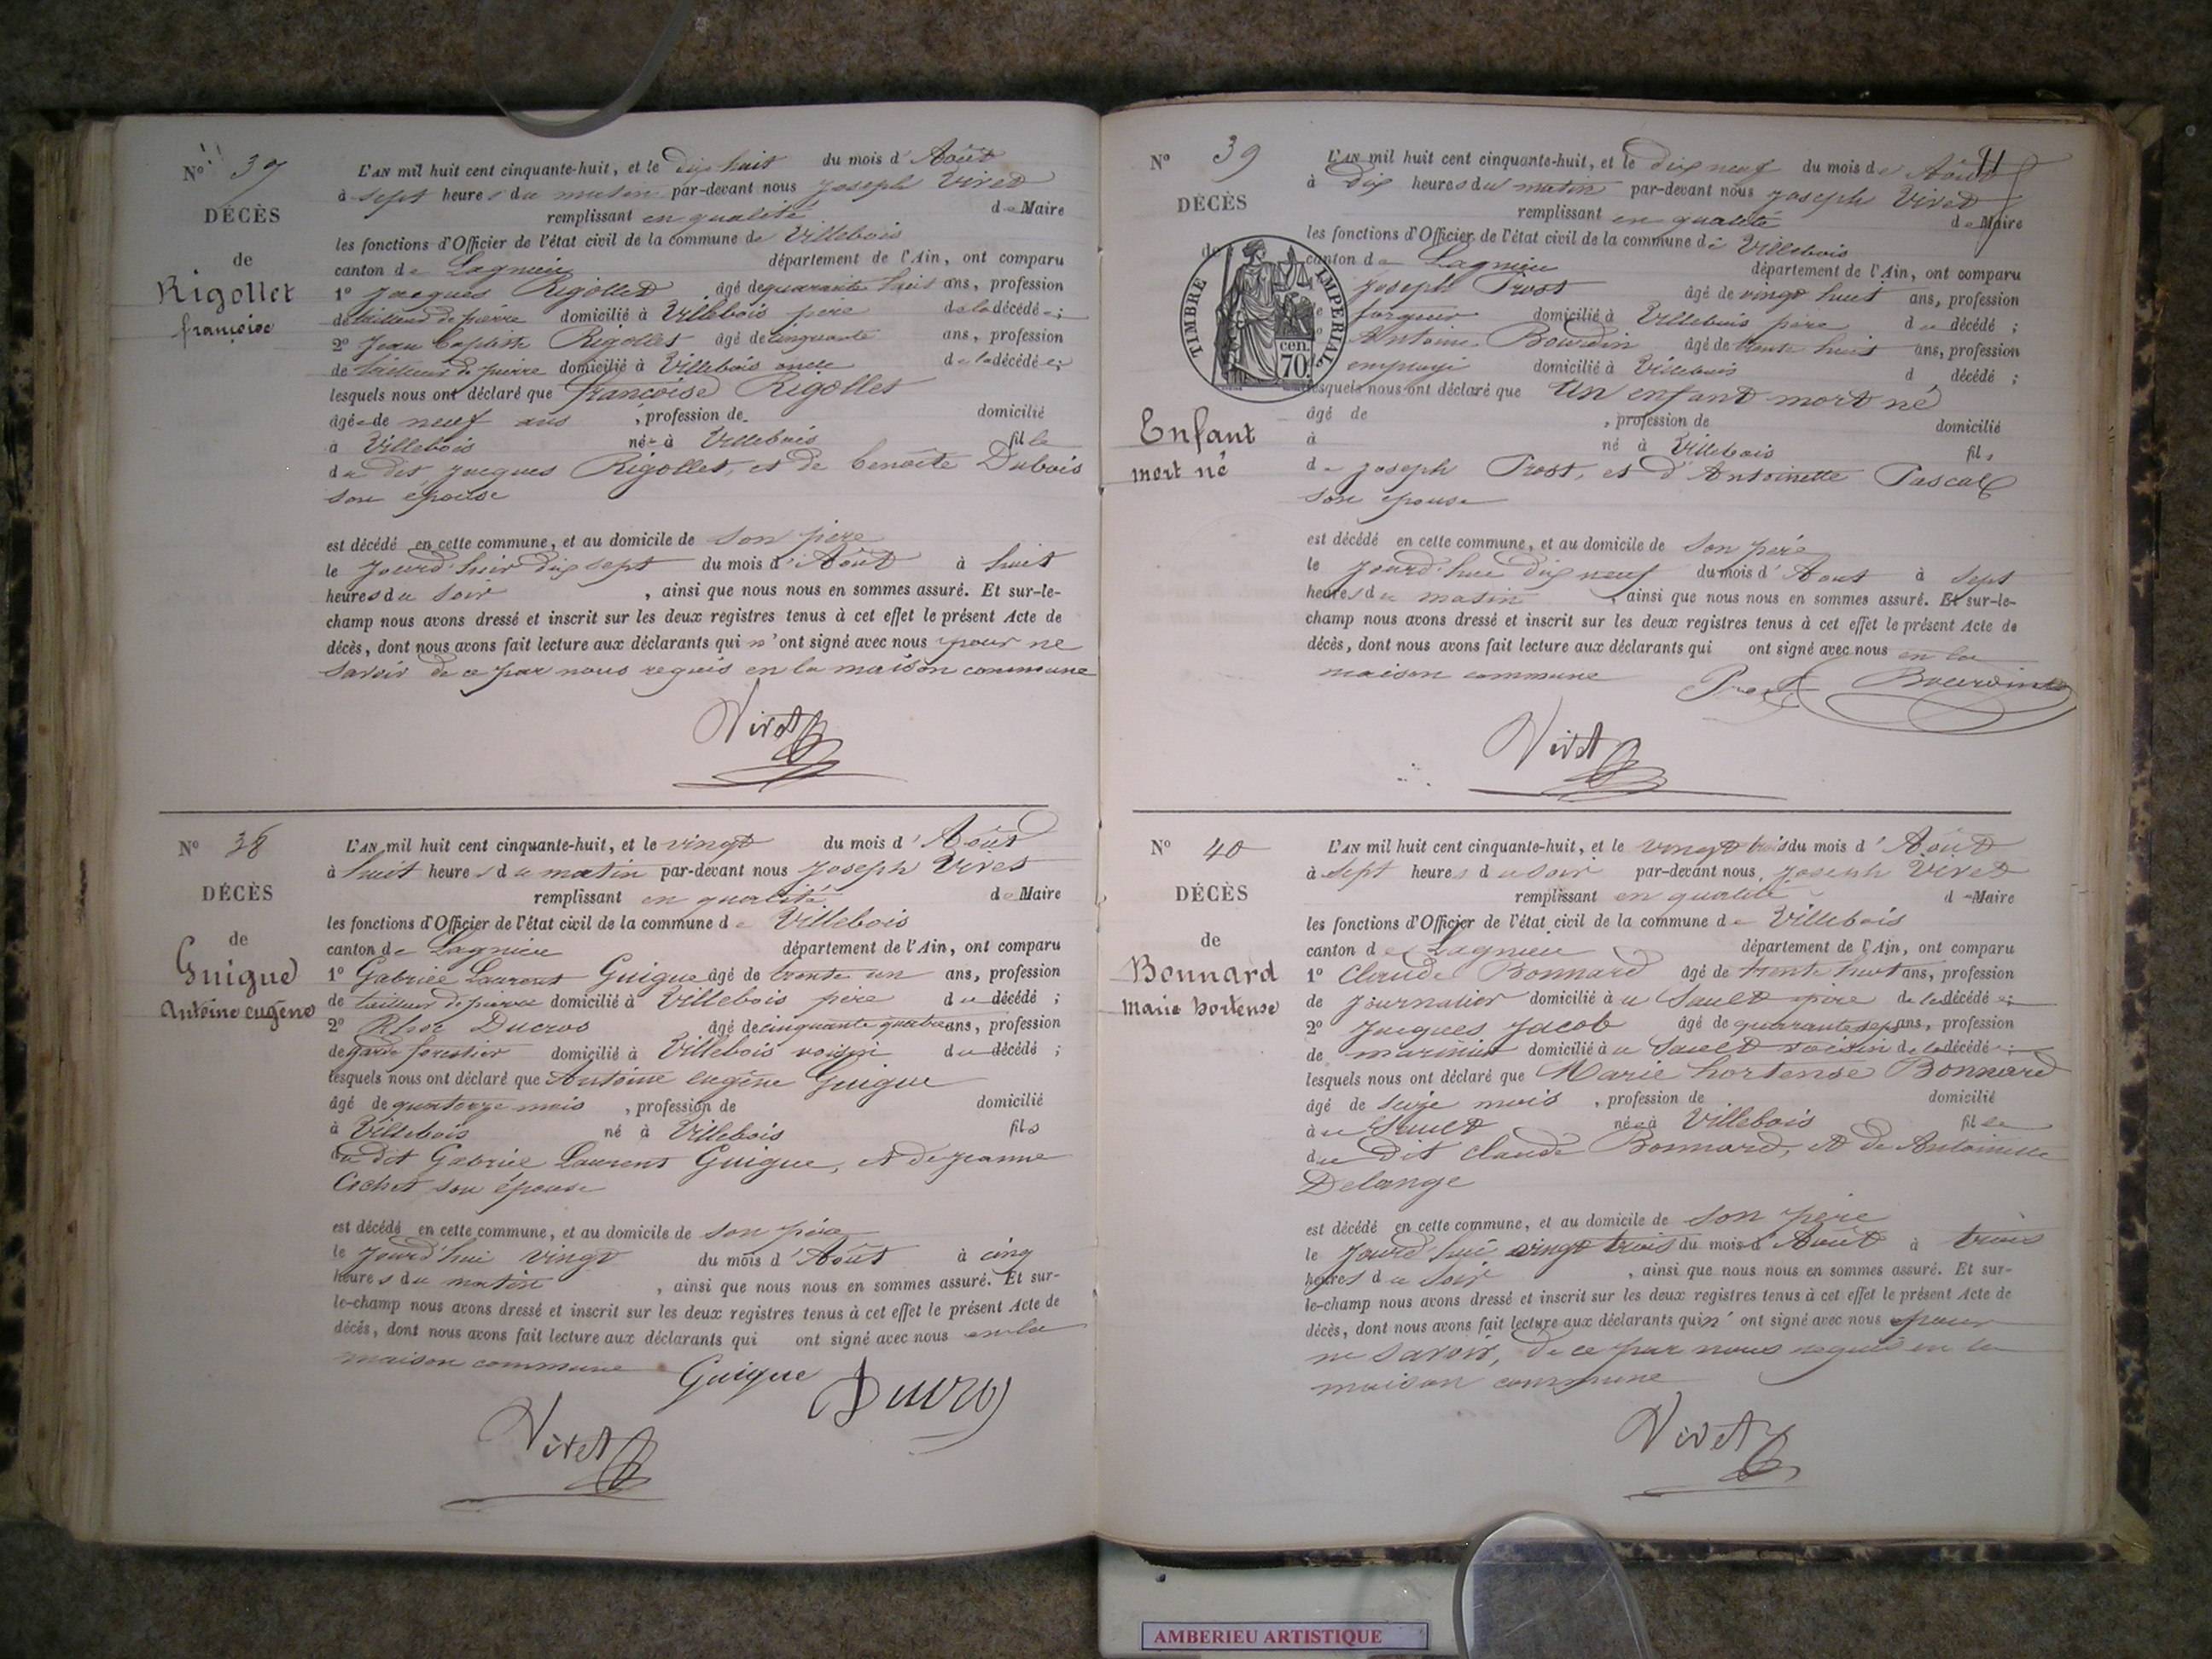 N° 37
DÉCÈS
de
Rigollet
françoise
L'AN mil huit cent cinquante-huit, et le dix huit du mois d'Août
à sept heures du matin par-devant nous Joseph Vivet
remplissant en qualité de Maire
les fonctions d'Officier de l'état civil de la commune de Villebois
canton de Lagnieu département de l'Ain, ont comparu
1° Jacques Rigollet âgé de quarante huit ans, profession
de tailleur de pierre domicilié à Villebois père de la décédée;
2° Jean Baptiste Rigollet âgé de cinquante ans, profession
de tailleur de pierre domicilié à Villebois oncle de la décédée;
lesquels nous ont déclaré que françoise Rigollet
âgée de neuf ans, profession de domicilié
à Villebois née à Villebois fille
du dit Jacques Rigollet, et de benoîte Dubois
son épouse
est décédé en cette commune, et au domicile de son père
le jourd'hier dix sept du mois d'Août à huit
heures du soir, ainsi que nous nous en sommes assuré. Et sur-le-
champ nous avons dressé et inscrit sur les deux registres tenus à cet effet le présent Acte de
décès, dont nous avons fait lecture aux déclarants qui n'ont signé avec nous pour ne
savoir de ce par nous requis en la maison commune
Vivet
N° 38
DÉCÈS
de
Guigue
Antoine eugène
L'AN mil huit cent cinquante-huit, et le vingt du mois d'Août
à huit heures du matin par-devant nous Joseph Vivet
remplissant en qualité de Maire
les fonctions d'Officier de l'état civil de la commune de Villebois
canton de Lagnieu département de l'Ain, ont comparu
1° Gabriel Laurent Guigue âgé de trente un ans, profession
de tailleur de pierre domicilié à Villebois père du décédé;
2° Ducros âgé de cinquante quatre ans, profession
de garde forestier domicilié à Villebois voisin du décédé;
lesquels nous ont déclaré que Antoine eugène Guigue
âgé de quatorze mois, profession de domicilié
à Villebois né à Villebois fils
du dit Gabriel Laurent Guigue, et de jeanne
Cochet son épouse
est décédé en cette commune, et au domicile de son père
le jourd'hui vingt du mois d'Août à cinq
heures du matin, ainsi que nous nous en sommes assuré. Et sur-
le-champ nous avons dressé et inscrit sur les deux registres tenus à cet effet le présent Acte de
décès, dont nous avons fait lecture aux déclarants qui ont signé avec nous en la
maison commune Guigue Ducros
Vivet
N° 39
DÉCÈS
de
TIMBRE IMPERIAL
cen.
70.
Enfant
mort né
L'AN mil huit cent cinquante-huit, et le dix neuf du mois de Août
à dix heures du matin par-devant nous Joseph Vivet
remplissant en qualité de Maire
les fonctions d'Officier de l'état civil de la commune de Villebois
canton de Lagnieu département de l'Ain, ont comparu
Joseph Prost âgé de vingt huit ans, profession
forgeur domicilié à Villebois père du décédé;
Antoine Bourdin âgé de trente huit ans, profession
employé domicilié à Villebois d décédé;
lesquels nous ont déclaré que Un enfant mort né
âgé de, profession de domicilié
à né à Villebois fils
de Joseph Prost, et d'Antoinette Pascal
son épouse
est décédé en cette commune, et au domicile de son père
le jourd'hui dix neuf du mois d'Aout à sept
heures du matin, ainsi que nous nous en sommes assuré. Et sur-le-
champ nous avons dressé et inscrit sur les deux registres tenus à cet effet le présent Acte de
décès, dont nous avons fait lecture aux déclarants qui ont signé avec nous en la
maison commune Prost Bourdin
Vivet
N° 40
DÉCÈS
de
Bonnard
Marie hortense
L'AN mil huit cent cinquante-huit, et le vingt trois du mois d'Août
à sept heures du soir par-devant nous, Joseph Vivet
remplissant en qualité de Maire
les fonctions d'Officier de l'état civil de la commune de Villebois
canton de Lagnieu département de l'Ain, ont comparu
1° Claude Bonnard âgé de trente huit ans, profession
de journalier domicilié à u Sault père de la décédée;
2° Jacques Jacob âgé de quarante sept ans, profession
de marinier domicilié à u Sault voisin de la décédée;
lesquels nous ont déclaré que Marie hortense Bonnard
âgé de seize mois, profession de domicilié
à u Sault née à Villebois fille
du Dit Claude Bonnard, et de Antoinette
Delange
est décédé en cette commune, et au domicile de son père
le jourd'hui vingt trois du mois d'Août à trois
heures du soir, ainsi que nous nous en sommes assuré. Et sur-
le-champ nous avons dressé et inscrit sur les deux registres tenus à cet effet le présent Acte de
décès, dont nous avons fait lecture aux déclarants qui n'ont signé avec nous pour
ne savoir, de ce par nous requis en la
maison commune
Vivet
AMBERIEU ARTISTIQUE